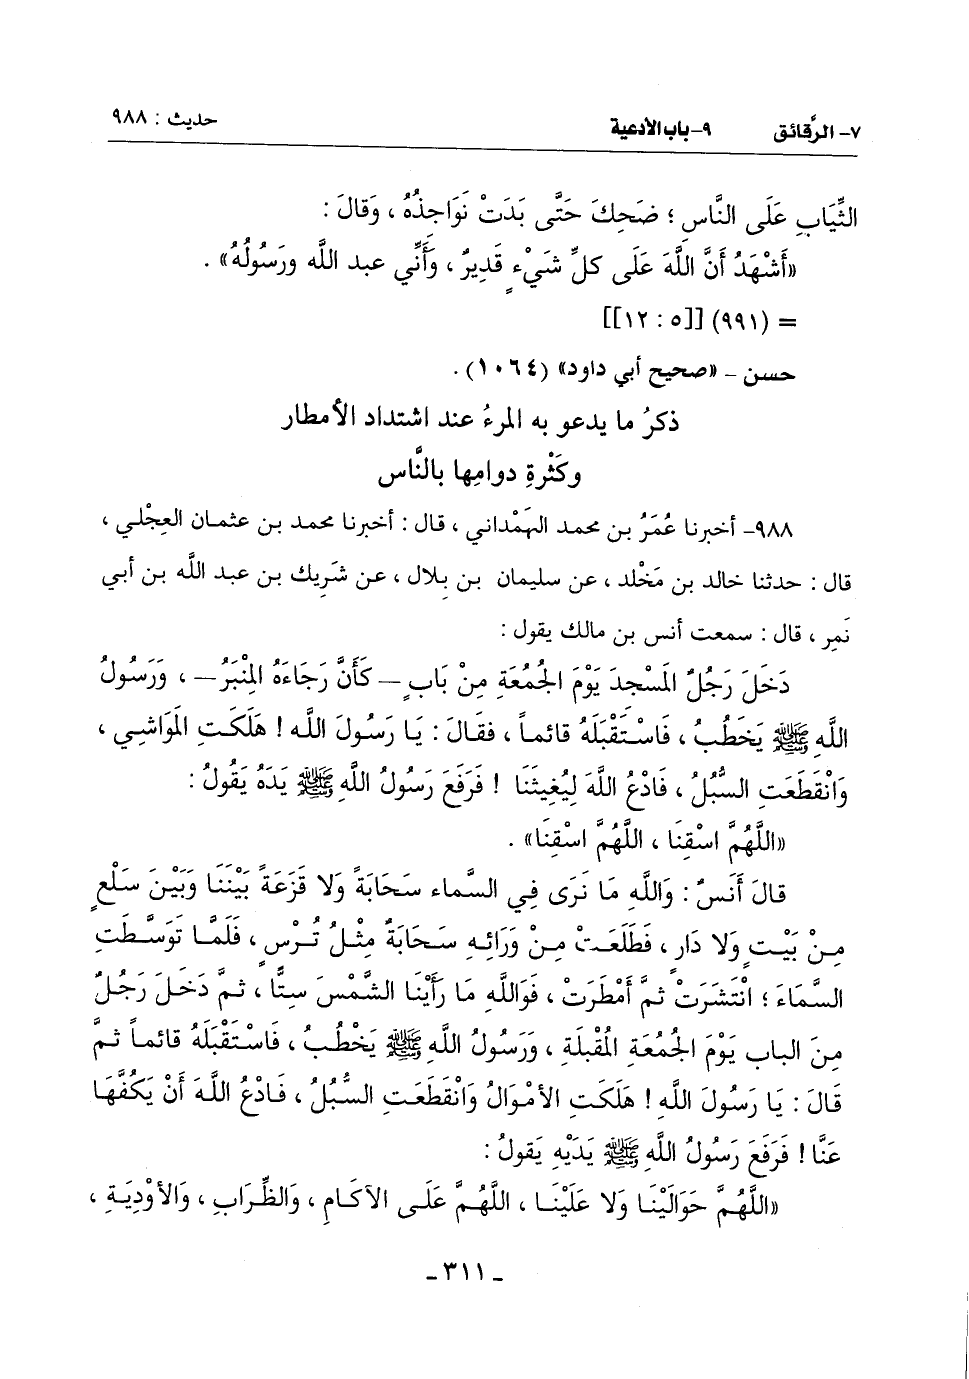 ٧- الرَّقائق ٩- باب الأدعية حديث : ٩٨٨
الثِّيَابِ عَلَى النَّاسِ ؛ ضَحِكَ حَتَّى بَدَتْ نَوَاجِذُهُ ، وَقَالَ :
«أَشْهَدُ أَنَّ اللَّهَ عَلَى كلِّ شَيْءٍ قَدِيرٌ ، وَأَنِّي عبد الله ورَسُولُهُ» .
= (٩٩١) [[٥ : ١٢]]
حسن – «صحيح أبي داود» (١٠٦٤) .
ذكرُ ما يدعو به المرءُ عند اشتداد الأمطار
وكَثْرةِ دوامِها بالنَّاس
٩٨٨- أخبرنا عُمَرُ بن محمد الهَمْداني ، قال : أخبرنا محمد بن عثمان العِجْلي ،
قال : حدثنا خالد بن مَخْلد ، عن سليمان بن بِلال ، عن شَرِيك بن عبد الله بن أبي
نَمِر ، قال : سمعت أنس بن مالك يقول :
دَخَلَ رَجُلٌ المَسْجِدَ يَوْمَ الجُمُعَةِ مِنْ بَابٍ – كَأَنَّ رَجَاءَهُ المِنْبَرُ – ، وَرَسُولُ
اللَّهِ ﷺ يَخطُبُ ، فَاسْتَقْبَلَهُ قائماً ، فقَالَ : يَا رَسُولَ الله ! هَلَكَتِ المَوَاشِي ،
وَانْقَطَعَتِ السُّبُلُ ، فَادْعُ اللَّهَ لِيُغِيثَنَا ! فَرَفَعَ رَسُولُ اللَّهِ ﷺ يَدَهُ يَقُولُ :
«اللَّهُمَّ اسْقِنَا ، اللَّهُمَّ اسْقِنَا» .
قالَ أَنَسٌ : وَاللَّهِ مَا نَرَى فِي السَّماء سَحَابَةً وَلا قَزَعَةً بَيْنَنَا وَبَيْنَ سَلْعٍ
مِنْ بَيْتٍ وَلا دَارٍ ، فَطَلَعَتْ مِنْ وَرَائِهِ سَحَابَةٌ مِثْلُ تُرْسٍ ، فَلَمَّا تَوَسَّطَتِ
السَّمَاءَ ؛ انْتَشَرَتْ ثمَّ أَمْطَرَتْ ، فَوَاللهِ مَا رَأَيْنَا الشَّمْسَ سِتًّا ، ثمَّ دَخَلَ رَجُلٌ
مِنَ الباب يَوْمَ الجُمُعَةِ المُقْبِلَةِ ، وَرَسُولُ اللَّهِ ﷺ يَخْطُبُ ، فَاسْتَقْبَلَهُ قائماً ثمَّ
قَالَ : يَا رَسُولَ اللَّهِ ! هَلَكَتِ الأَمْوَالُ وَانْقَطَعَتِ السُّبُلُ ، فَادْعُ اللَّهَ أَنْ يَكُفَّهَا
عَنَّا ! فَرَفَعَ رَسُولُ اللَّهِ ﷺ يَدَيْهِ يَقولُ :
«اللَّهُمَّ حَوَالَيْنَا وَلا عَلَيْنَا ، اللَّهُمَّ عَلَى الآكَامِ ، وَالظِّرَابِ ، وَالأوْدِيَةِ ،
- ٣١١ -